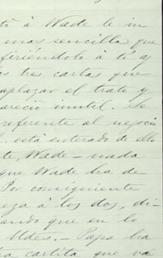 tó á Wade le in
mas sencilla que
firiéndote á ti y
os tres cartas que
aplazar el trato y
sición inutil. Le
referente al negocio
está enterado de ello
te, Wade - nada
que Wade ha de
Por consiguiente
eza á los dos, di
ando que en lo
Udes. - Papa ha
a cartita que va